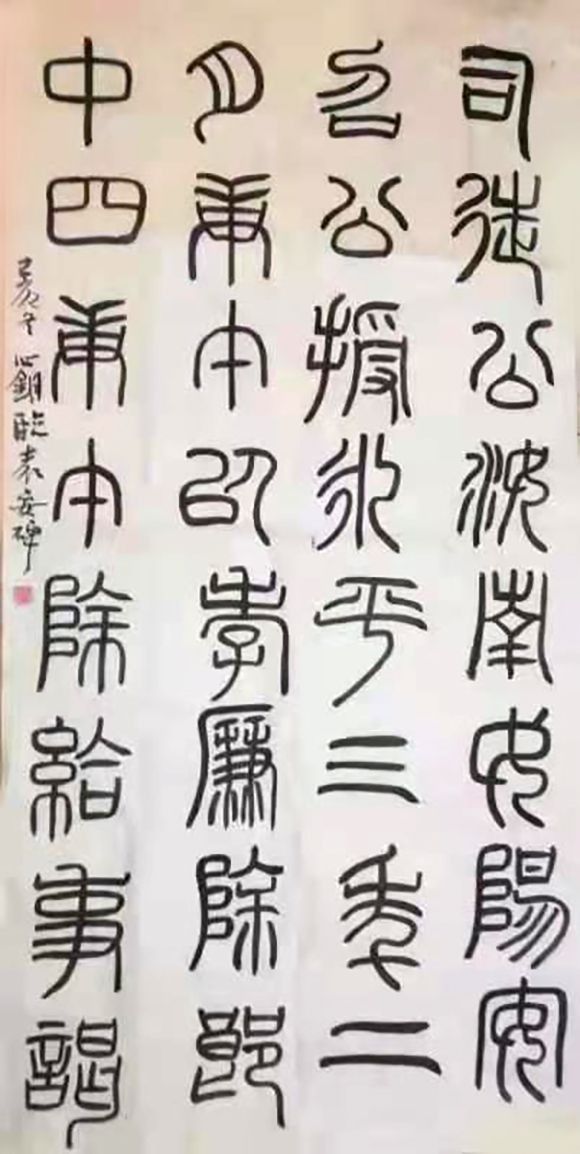 司徒公汝南女陽安
召公授永平三年二
月庚午以孝廉除郎
中四庚午除給事謁
臨袁安碑